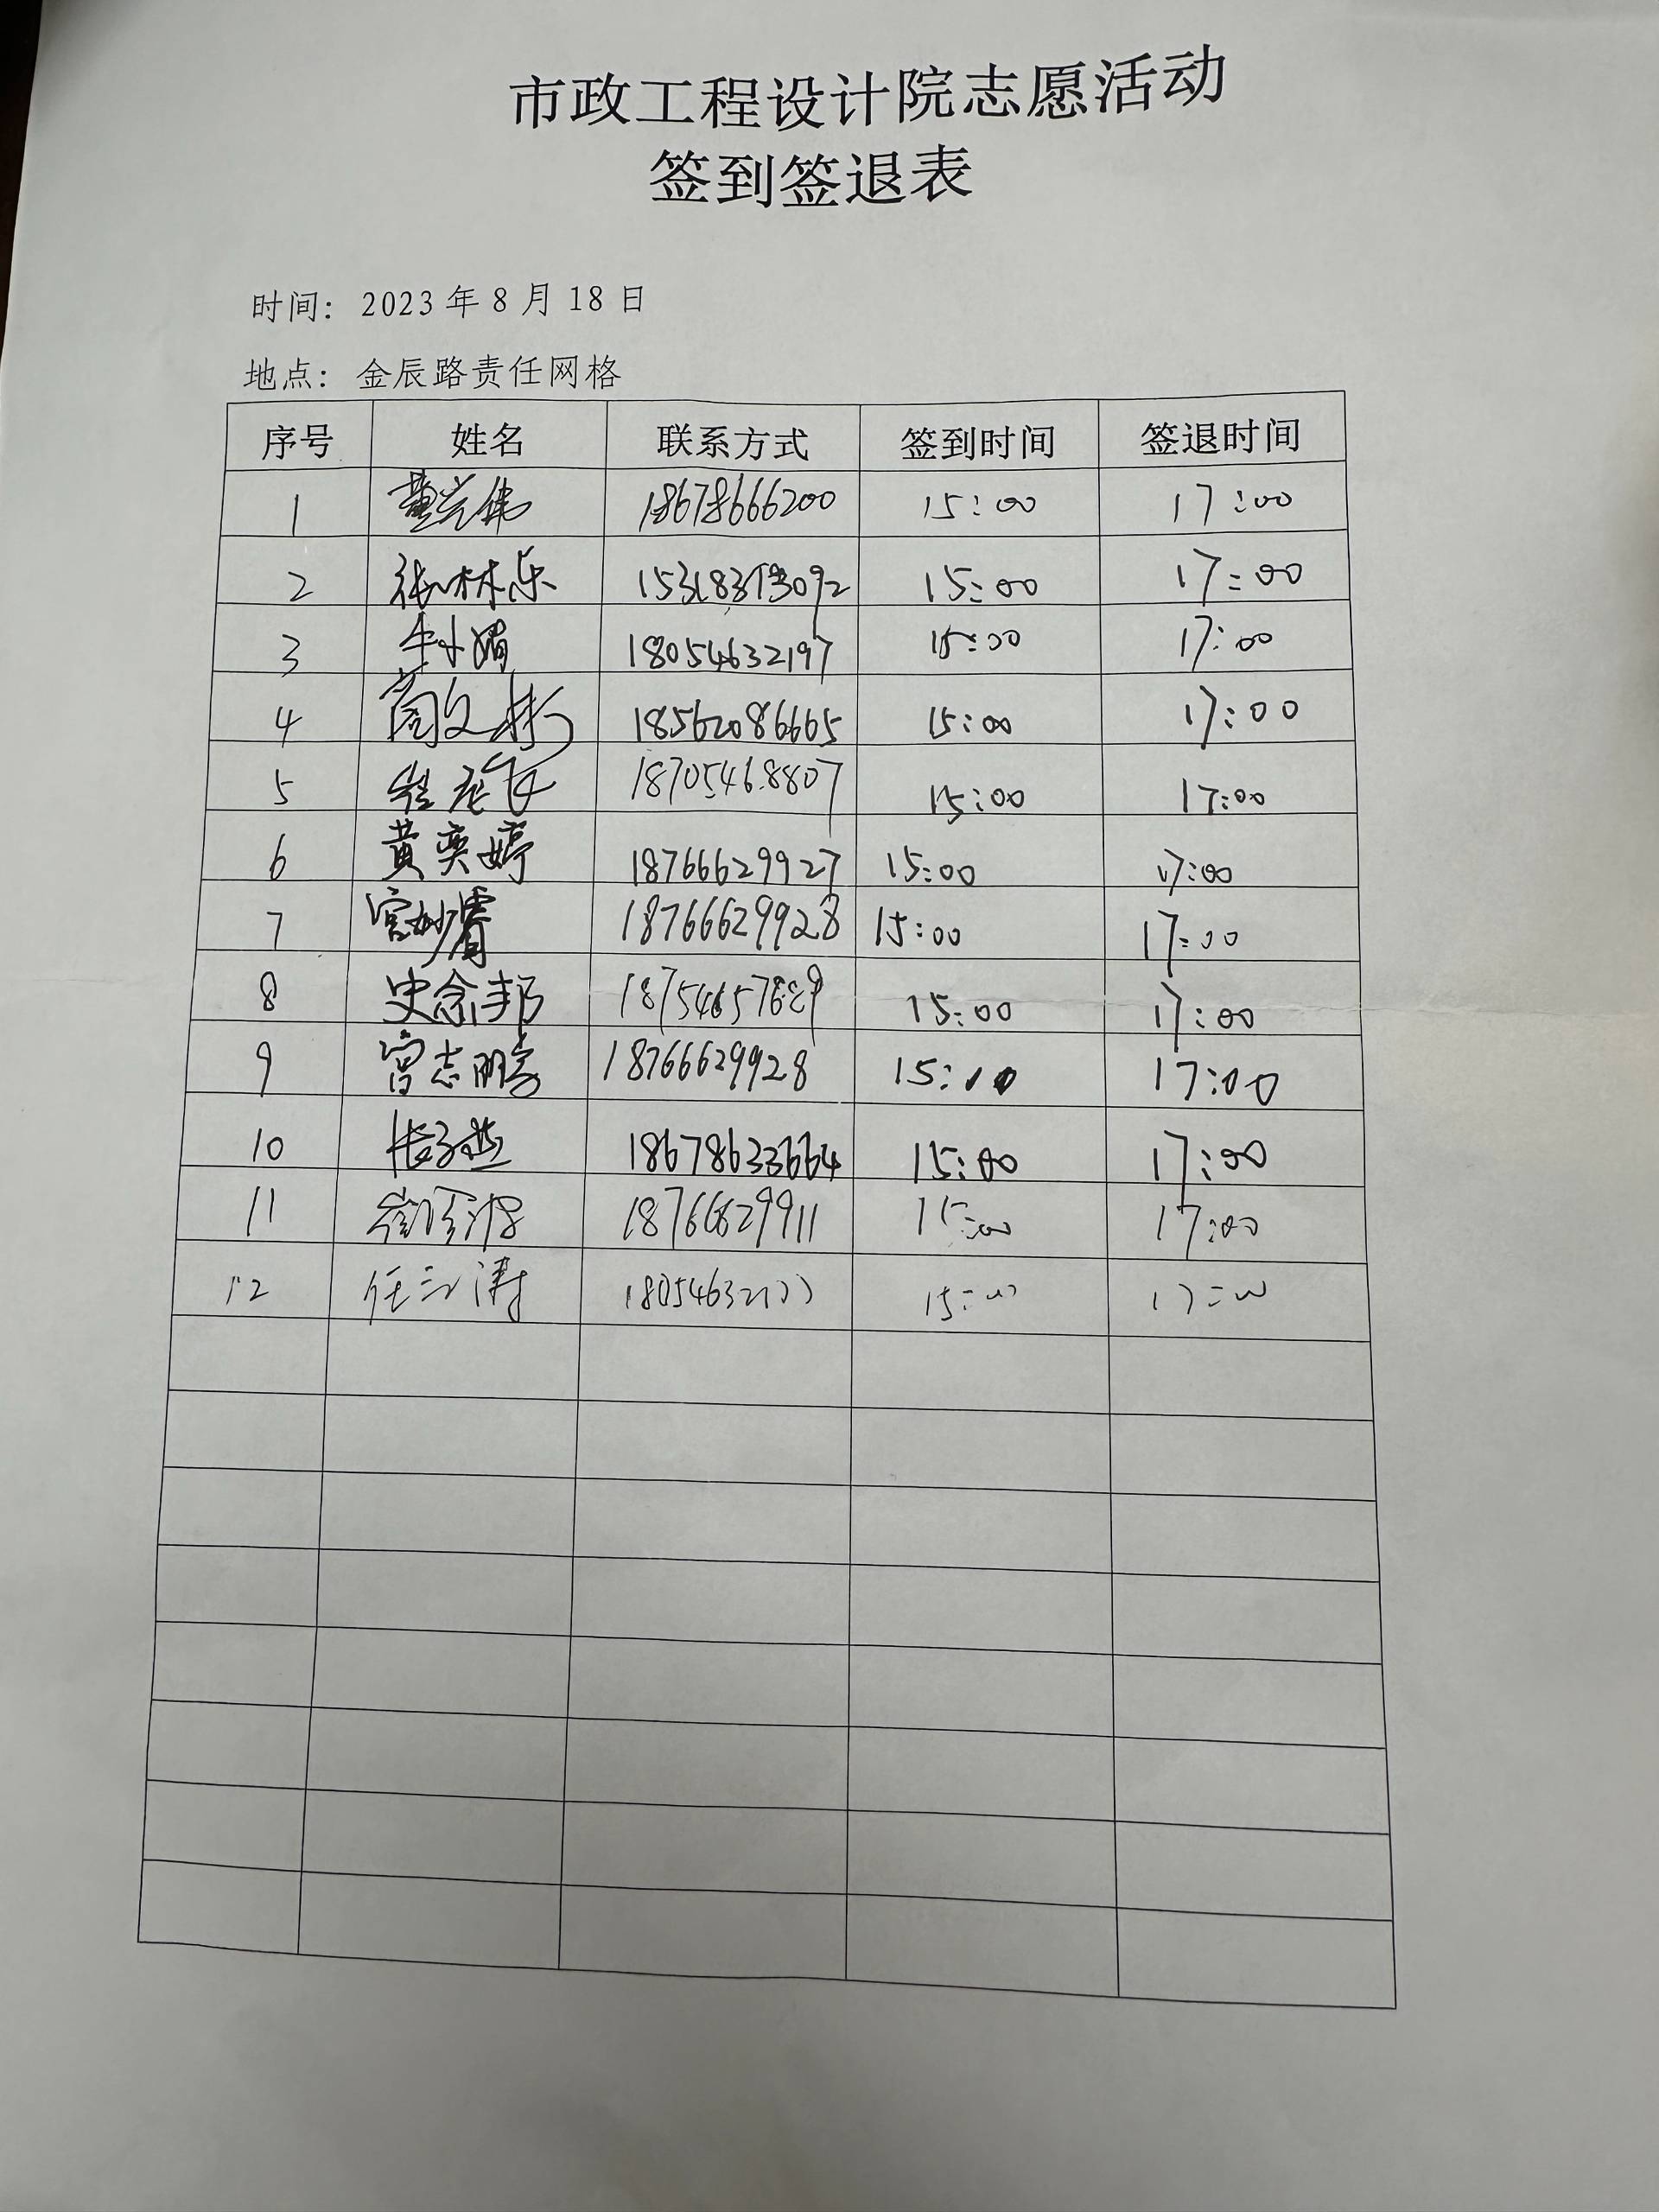 市政工程设计院志愿活动
签到签退表
时间：2023年8月18日
地点：金辰路责任网格
序号 姓名 联系方式 签到时间 签退时间
1 18678666200 15:00 17:00
2 张林乐 15:00 17:00
3 18054632197 15:00 17:00
4 18562086665 15:00 17:00
5 18705468807 15:00 17:00
6 黄奕婷 18766629927 15:00 17:00
7 18766629928 15:00 17:00
8 史念邦 15:00 17:00
9 宫志鹏 18766629928 15:00 17:00
10 18678633664 15:00 17:00
11 18766629911 15:00 17:00
12 15:00 17:00